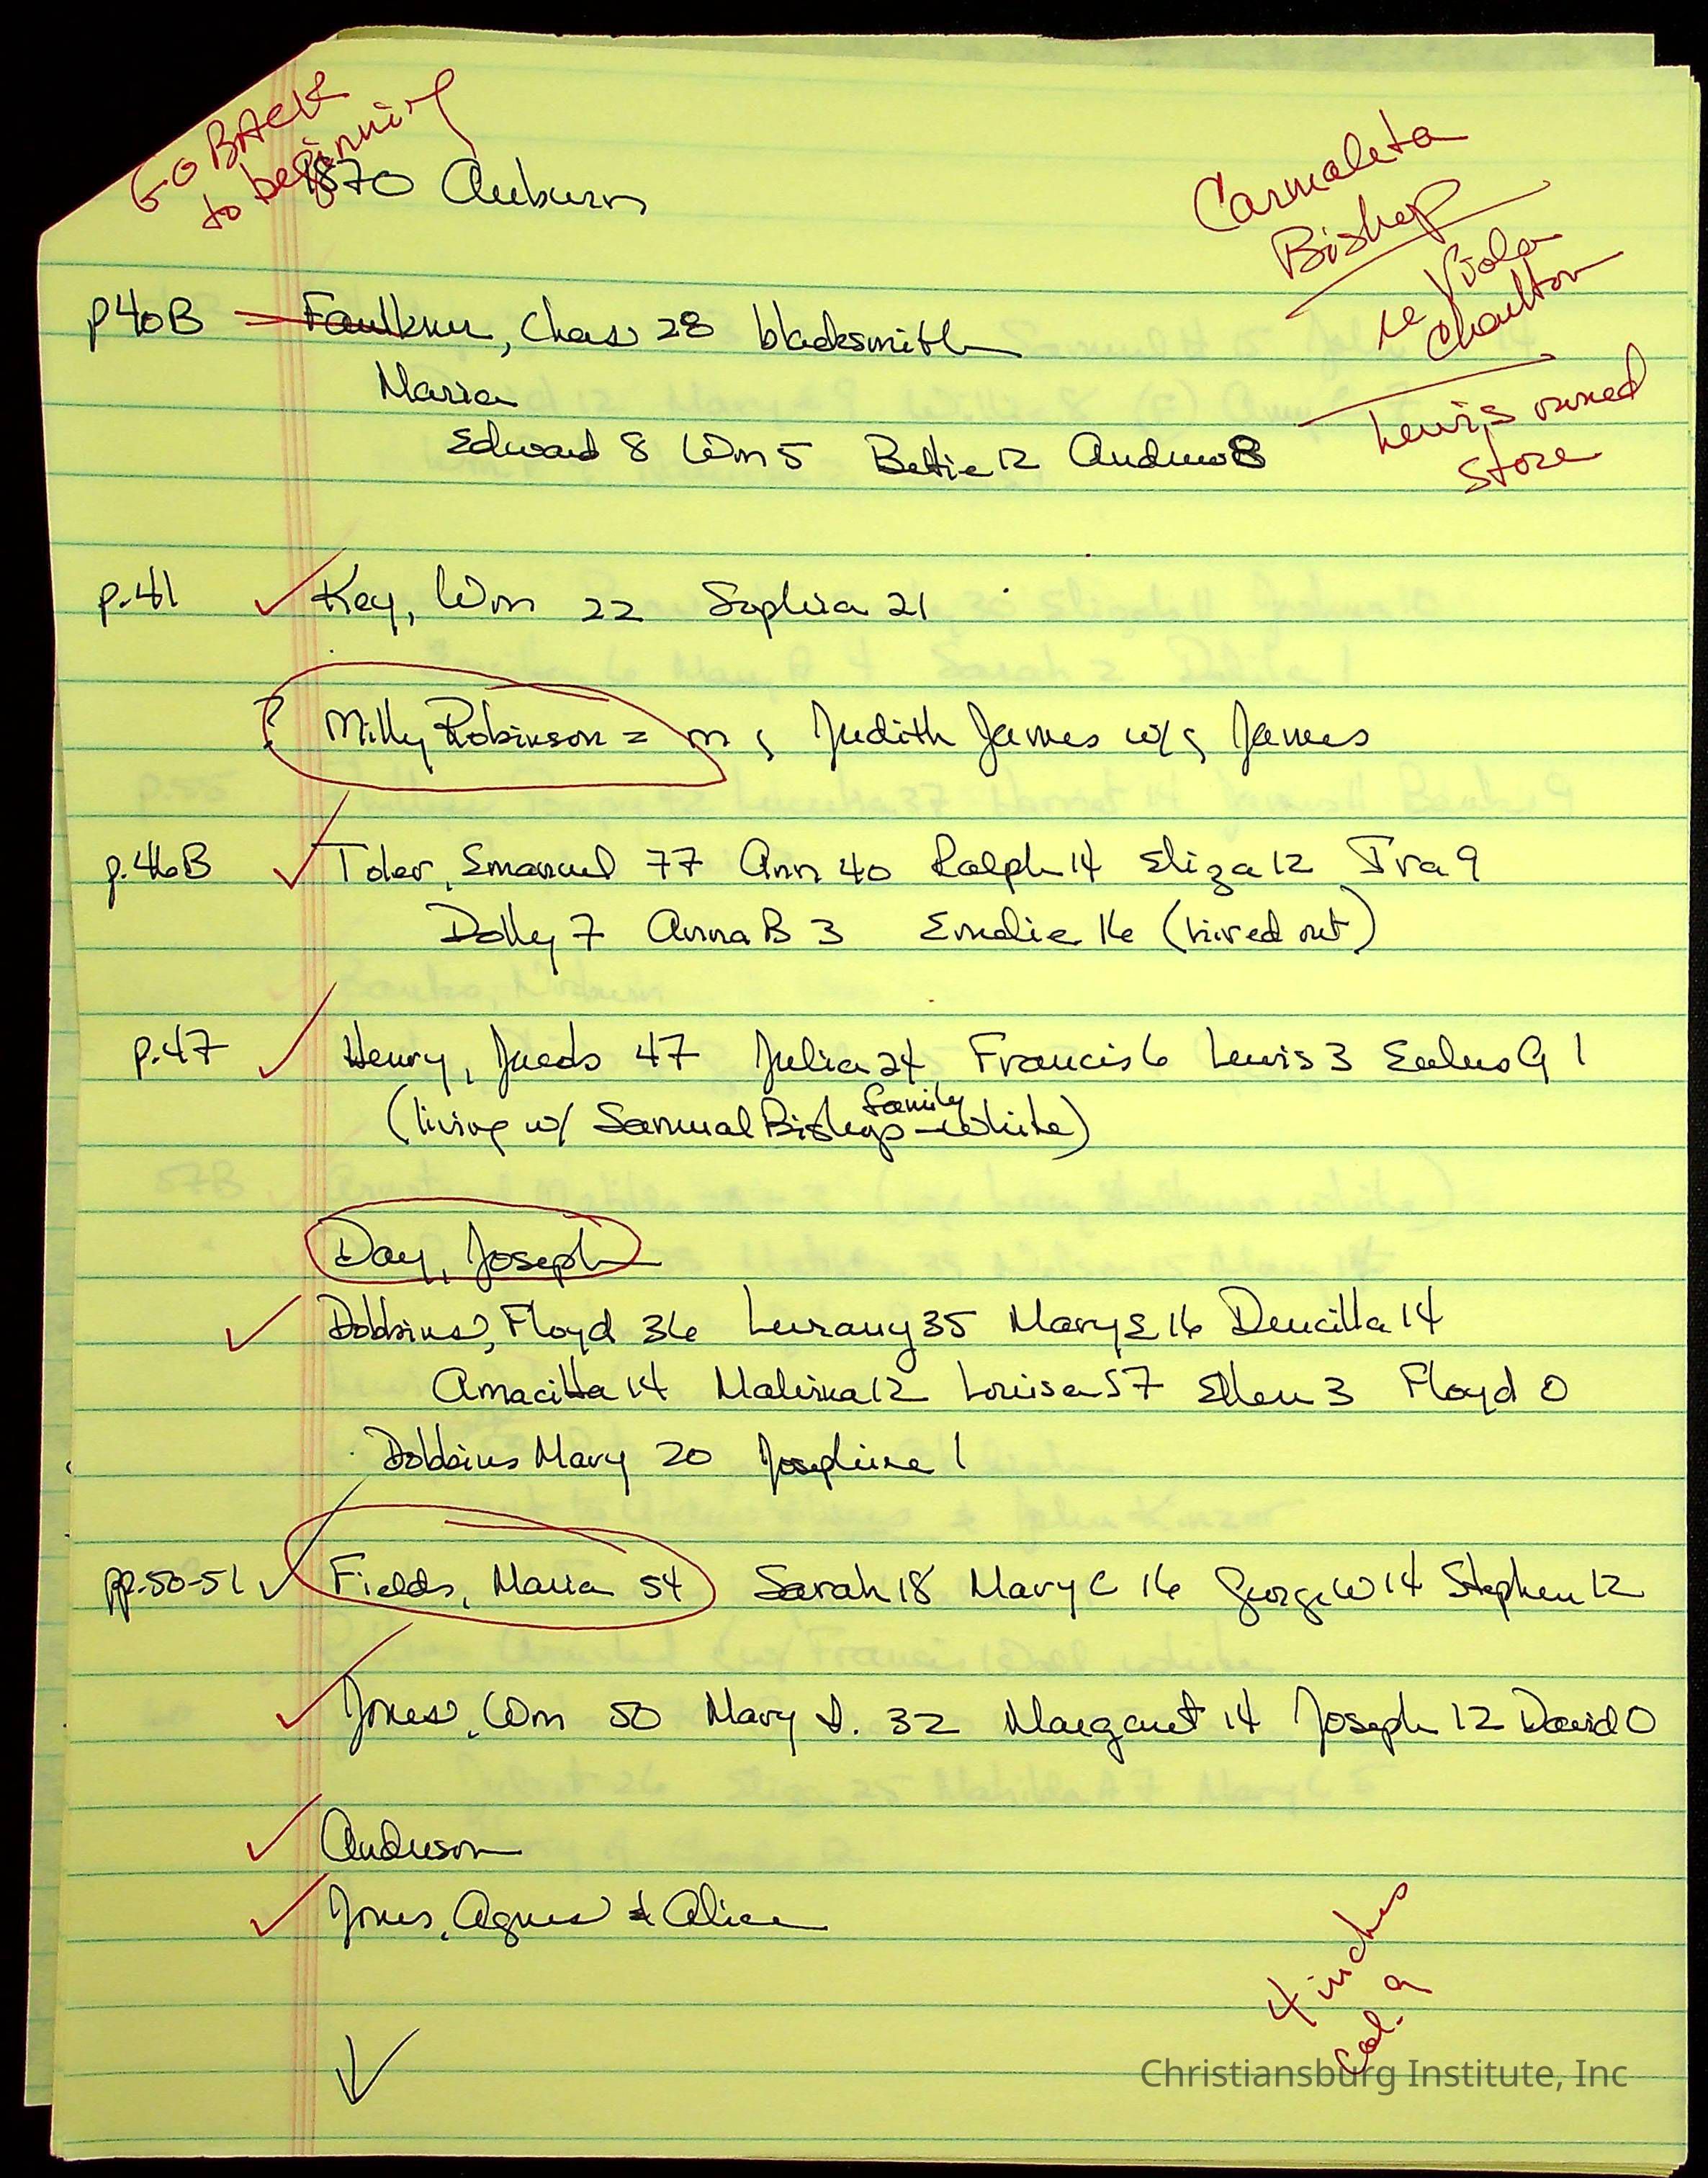 GO BACK
to beginning
1870 Auburn
Carmaleta
Bishop
re Viola
Charlton
Lewis owned
store
p40B Faulkner, Chas 28 blacksmith
Maria
Edward 8 Wm 5 Bettie 12 Andrew 8
p.41 Key, Wm 22 Sophia 21
? Milly Robinson = m of Judith James w/of James
p.46B Toler, Emanuel 77 Ann 40 Ralph 14 Eliza 12 Ira 9
Dolly 7 Anna B 3 Emelie 16 (hired out)
p.47 Henry, 47 Julia 24 Francis 6 Lewis 3 1
(living w/ Samual Bishop family - white)
Day, Joseph
Dobbins, Floyd 36 Lurany 35 Mary E 16 Deucilla 14
Amacilla 14 Malinka 12 Louisa 57 Ellen 3 Floyd 0
Dobbins Mary 20 Josephine 1
pp.50-51 Fields, Maria 54 Sarah 18 Mary C 16 George W 14 Stephen 12
Jones, Wm 50 Mary 32 Margaret 14 Joseph 12 David 0
Anderson
Jones, Agnes & Alice
4 inches
col. 9
Christiansburg Institute, Inc